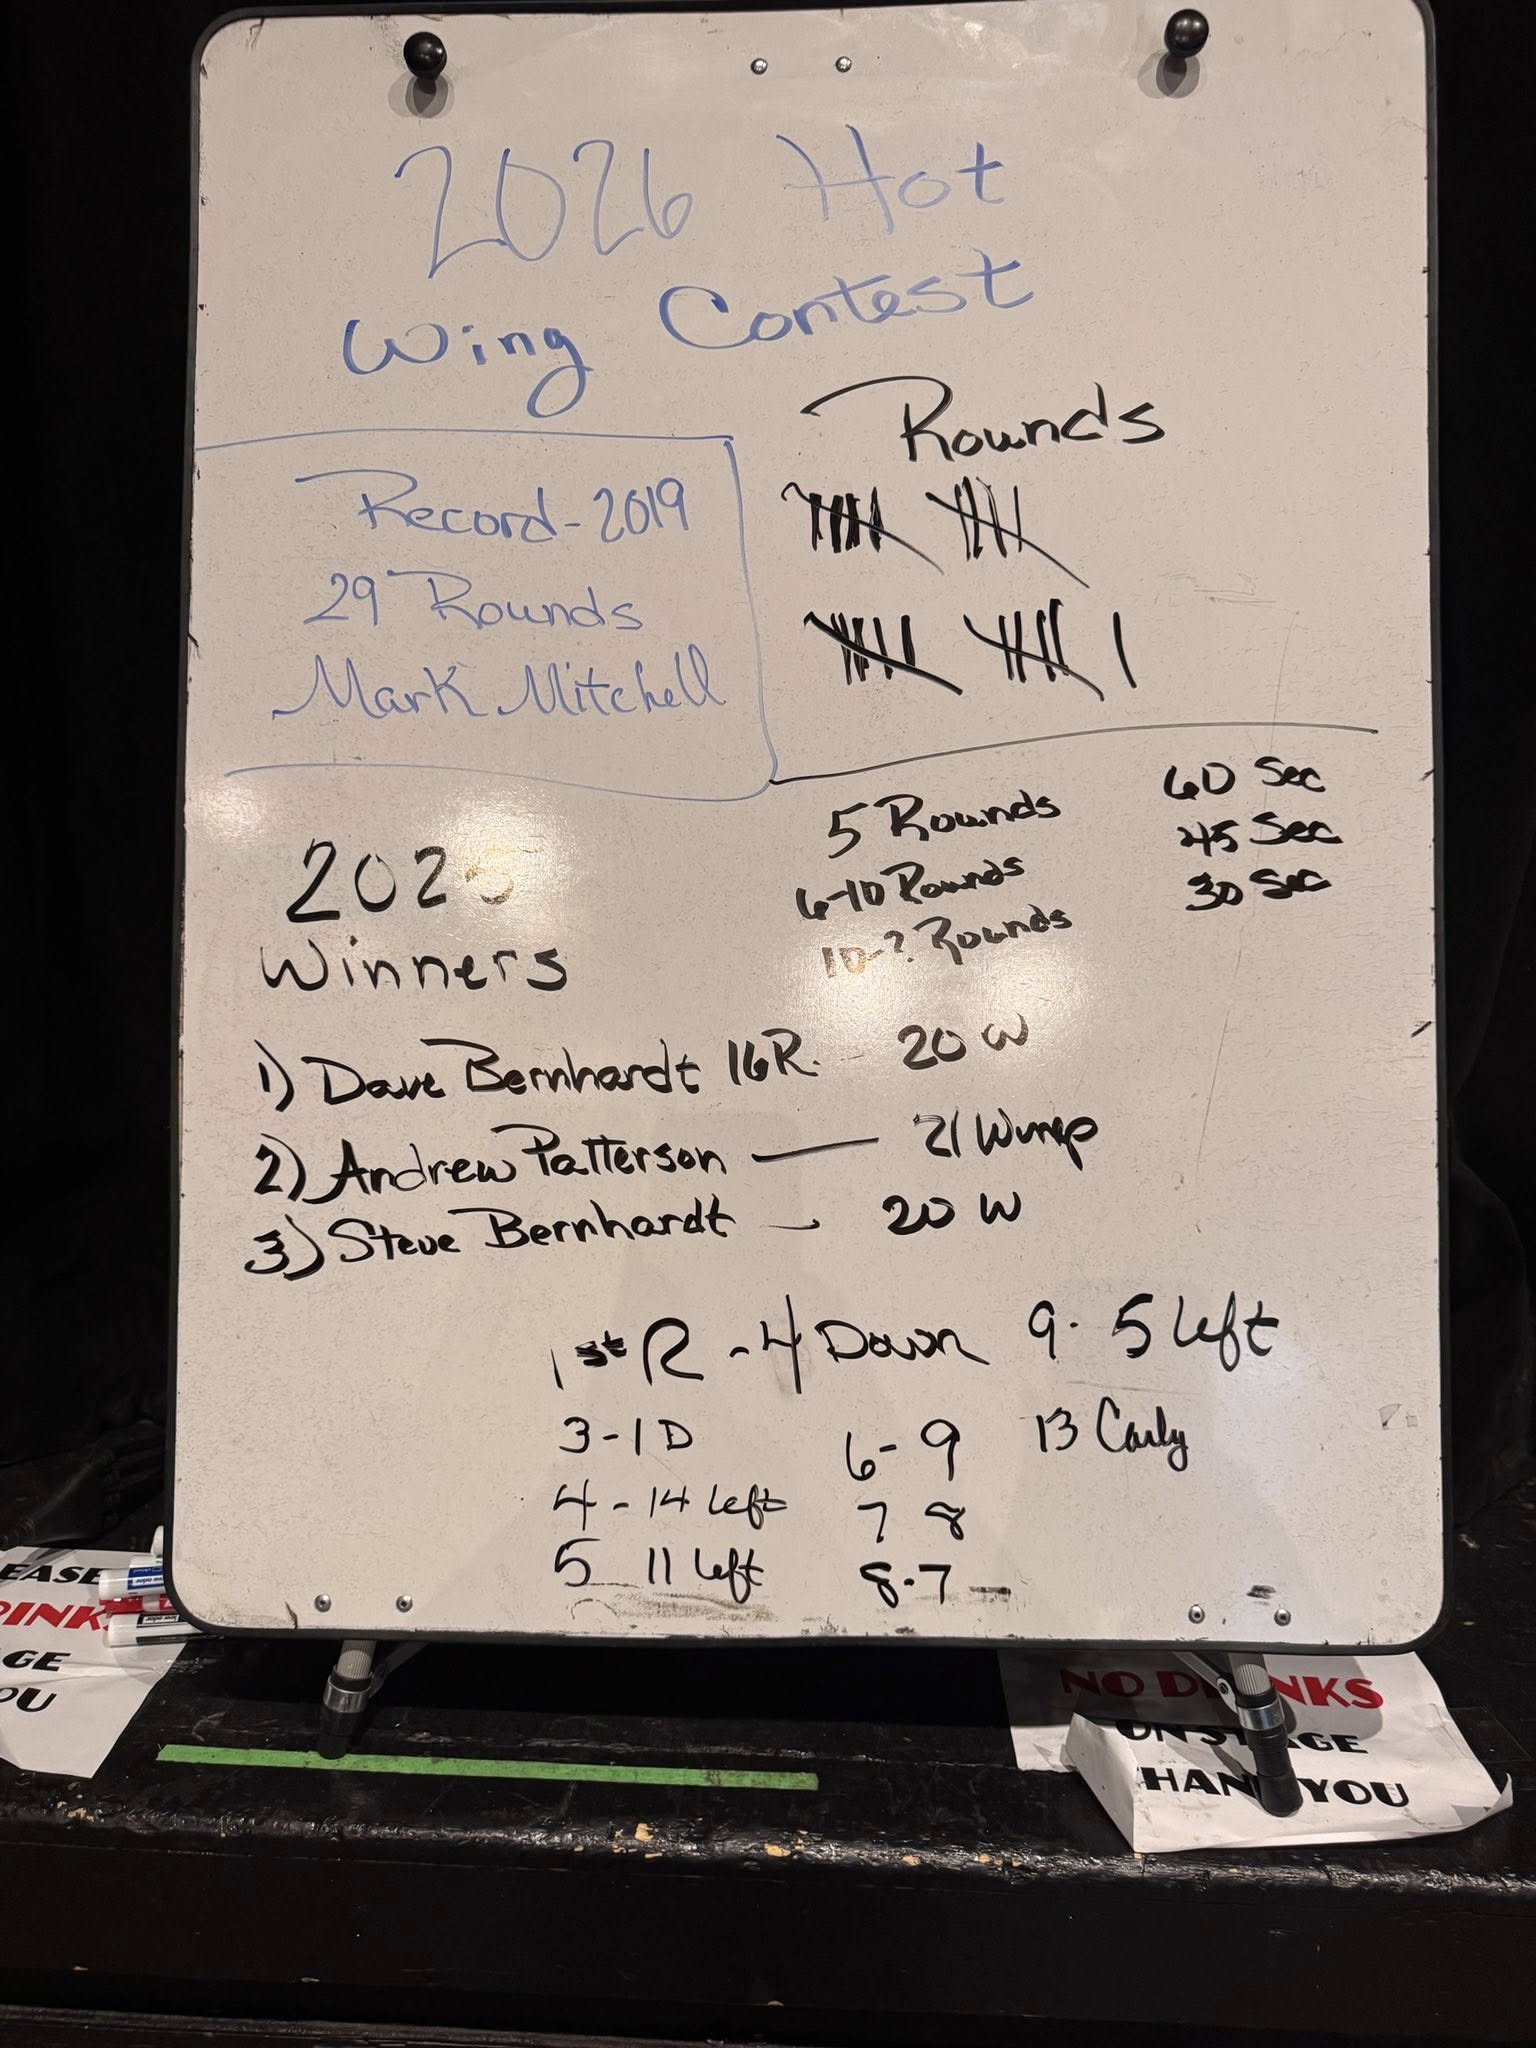 2026 Hot
Wing Contest
Record - 2019
29 Rounds
Mark Mitchell
Rounds
5 Rounds 60 Sec
6-10 Rounds 45 Sec
10-? Rounds 30 Sec
2025
Winners
1) Dave Bernhardt 16R. - 20 W
2) Andrew Patterson — 21 Wings
3) Steve Bernhardt - 20 W
1st R - 4 Down 9. 5 left
3 - 1 D 6 - 9 13 Carly
4 - 14 left 7 8
5 11 left 8.7
EASE
RINK
GE
OU
NO DRINKS
ON STAGE
THANK YOU